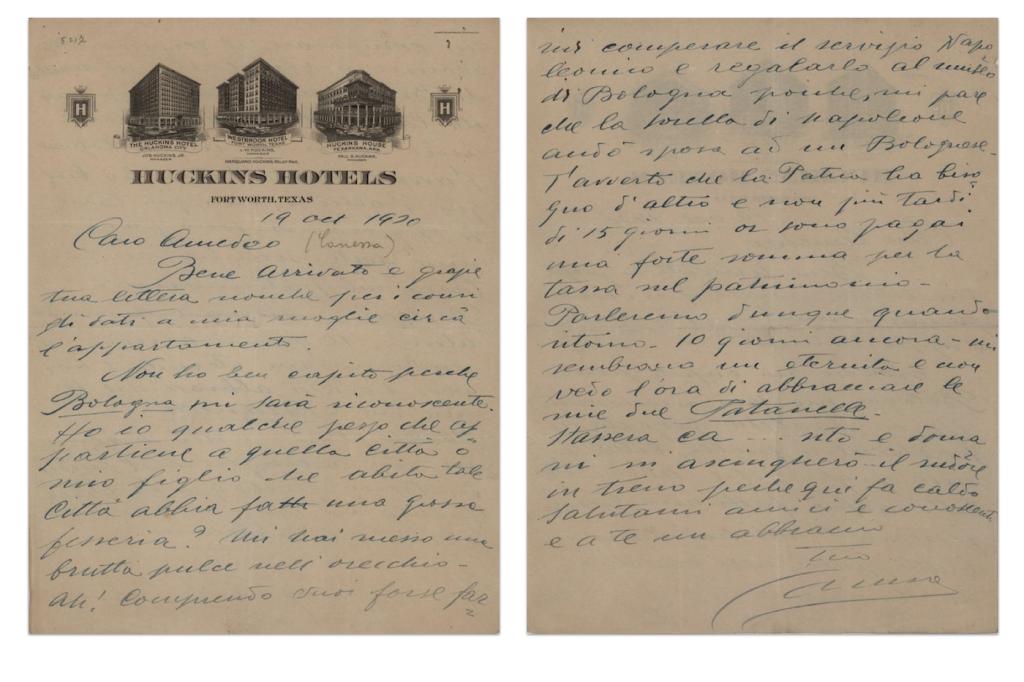 5212
THE HUCKINS HOTEL
OKLAHOMA CITY
JOS. HUCKINS, JR.
MANAGER
WESTBROOK HOTEL
FORT WORTH, TEXAS
L.W. HUCKINS,
MANAGER
HUCKINS HOUSE
TEXARKANA, ARK.
PAUL G. HUCKINS,
MANAGER
H
H
HUCKINS HOTELS
FORT WORTH, TEXAS
19 oct 1920
Caro Amedeo (Canessa)
Bene arrivato e grazie
tua lettera nonche per i
di dati a mia moglie circa
l'appartamento.
Non ho ben capito perche
Bologna mi sarà riconoscente.
Ho io qualche pezzo che ap
partiene a quella città o
mio figlio che abita tale
Città abbia fatto una grossa
fesseria? Mi hai messo una
brutta pulce nell'orecchio -
Ah! Comprendo vuoi forse far
mi comperare il servizio Napo
leonico e regalarlo al museo
di Bologna poiche, mi pare
che la sorella di Napoleone
andò sposa ad un Bolognese.
T'avverto che la Patria ha biso
gno d'altro e non più tardi
di 15 giorni or sono pagai
una forte somma per la
tassa sul patrimonio -
Parleremo dunque quando
ritorno. 10 giorni ancora - mi
sembrano un eternità e non
vedo l'ora di abbracciare le
mie due Patanelle.
Stassera ca ... nto e doma
ni mi asciugherò il sudore
in treno perche qui fa caldo
Salutami amici e conoscenti
e a te un abbraccio
Tuo